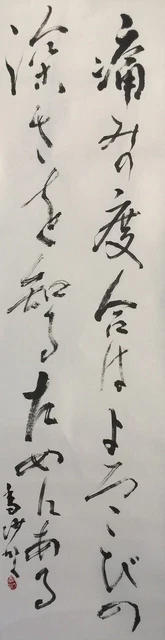 痛みの度合はよろこびの
深さを知るためにある